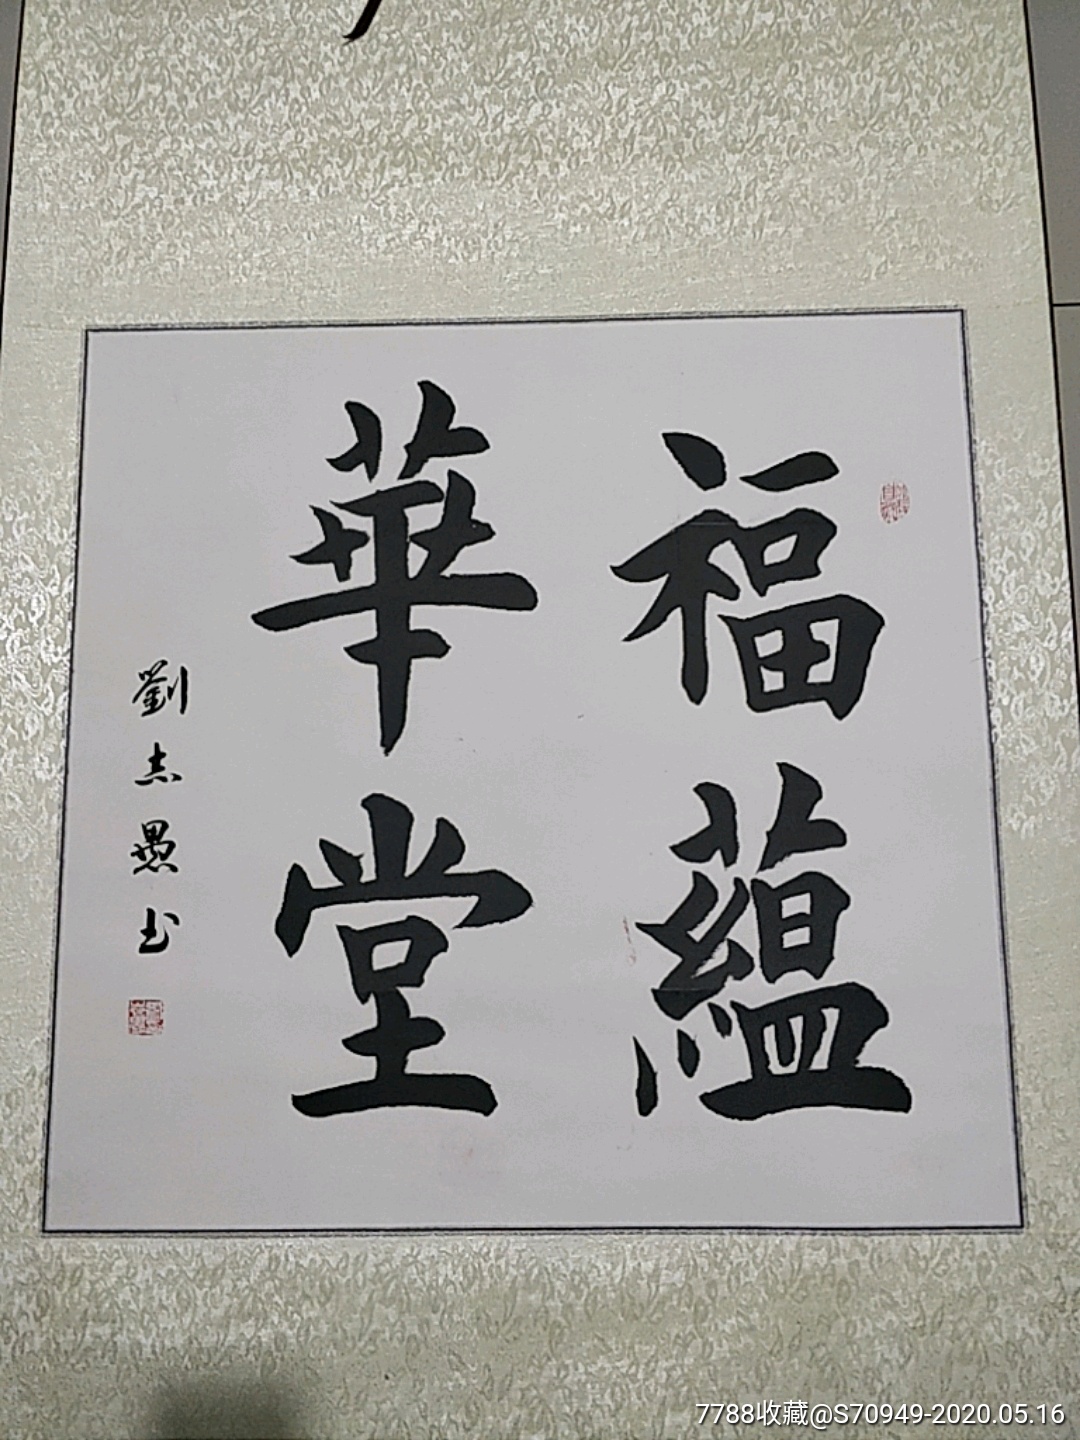 福蘊
華堂
劉志愚书
7788收藏@S70949-2020.05.16